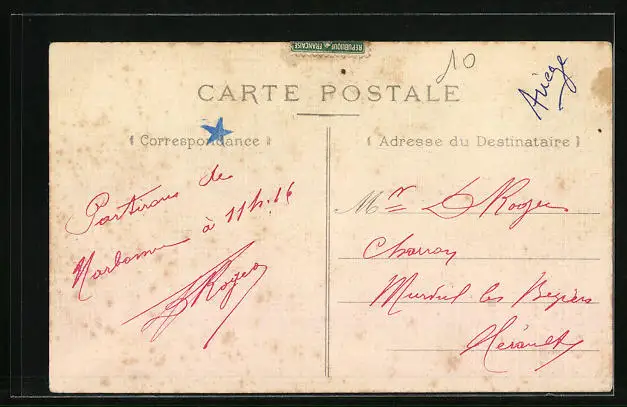 REPUBLIQUE FRANÇAISE
10
Ariège
CARTE POSTALE
Correspondance
Adresse du Destinataire
Partirons de
Narbonne à 11h.16
Roger
Mr Roger
Charron
les Beziers
Hérault